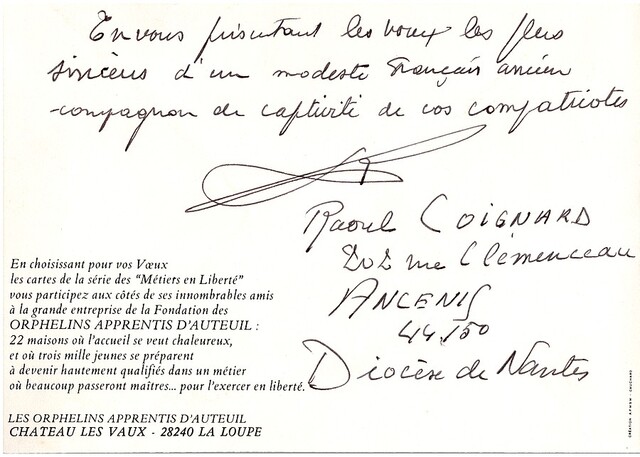 En vous présentant les voeux les plus
sincères d'un modeste Français ancien
compagnon de captivité de vos compatriotes
Raoul COIGNARD
202 rue Clémenceau
ANCENIS
44150
Diocèse de Nantes
En choisissant pour vos Vœux
les cartes de la série des "Métiers en Liberté"
vous participez aux côtés de ses innombrables amis
à la grande entreprise de la Fondation des
ORPHELINS APPRENTIS D'AUTEUIL :
22 maisons où l'accueil se veut chaleureux,
et où trois mille jeunes se préparent
à devenir hautement qualifiés dans un métier
où beaucoup passeront maîtres... pour l'exercer en liberté.
LES ORPHELINS APPRENTIS D'AUTEUIL
CHATEAU LES VAUX - 28240 LA LOUPE